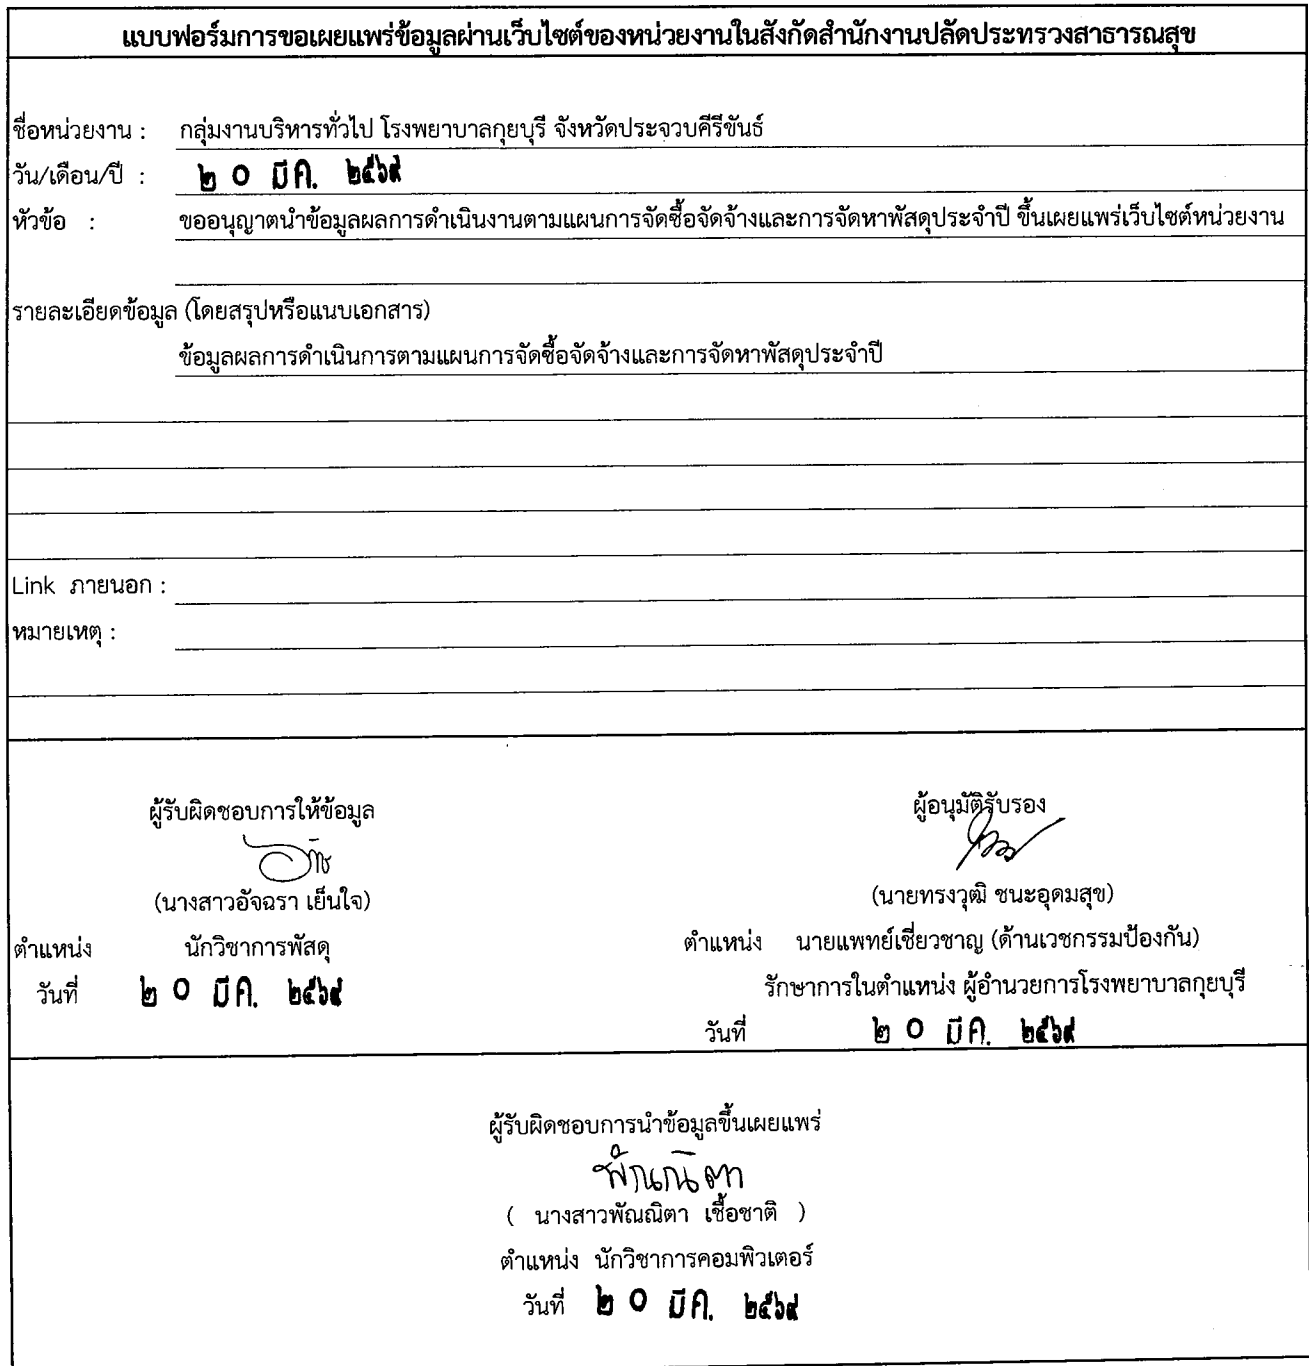 แบบฟอร์มการขอเผยแพร่ข้อมูลผ่านเว็บไซต์ของหน่วยงานในสังกัดสำนักงานปลัดประทรวงสาธารณสุข
ชื่อหน่วยงาน : กลุ่มงานบริหารทั่วไป โรงพยาบาลกุยบุรี จังหวัดประจวบคีรีขันธ์
วัน/เดือน/ปี : ๒ ๐ มี.ค. ๒๕๖๙
หัวข้อ : ขออนุญาตนำข้อมูลผลการดำเนินงานตามแผนการจัดซื้อจัดจ้างและการจัดหาพัสดุประจำปี ขึ้นเผยแพร่เว็บไซต์หน่วยงาน
รายละเอียดข้อมูล (โดยสรุปหรือแนบเอกสาร)
ข้อมูลผลการดำเนินการตามแผนการจัดซื้อจัดจ้างและการจัดหาพัสดุประจำปี
Link ภายนอก :
หมายเหตุ :
ผู้รับผิดชอบการให้ข้อมูล
(นางสาวอัจฉรา เย็นใจ)
ตำแหน่ง นักวิชาการพัสดุ
วันที่ ๒ ๐ มี.ค. ๒๕๖๙
ผู้อนุมัติรับรอง
(นายทรงวุฒิ ชนะอุดมสุข)
ตำแหน่ง นายแพทย์เชี่ยวชาญ (ด้านเวชกรรมป้องกัน)
รักษาการในตำแหน่ง ผู้อำนวยการโรงพยาบาลกุยบุรี
วันที่ ๒ ๐ มี.ค. ๒๕๖๙
ผู้รับผิดชอบการนำข้อมูลขึ้นเผยแพร่
พัณณิตา
( นางสาวพัณณิตา เชื้อชาติ )
ตำแหน่ง นักวิชาการคอมพิวเตอร์
วันที่ ๒ ๐ มี.ค. ๒๕๖๙